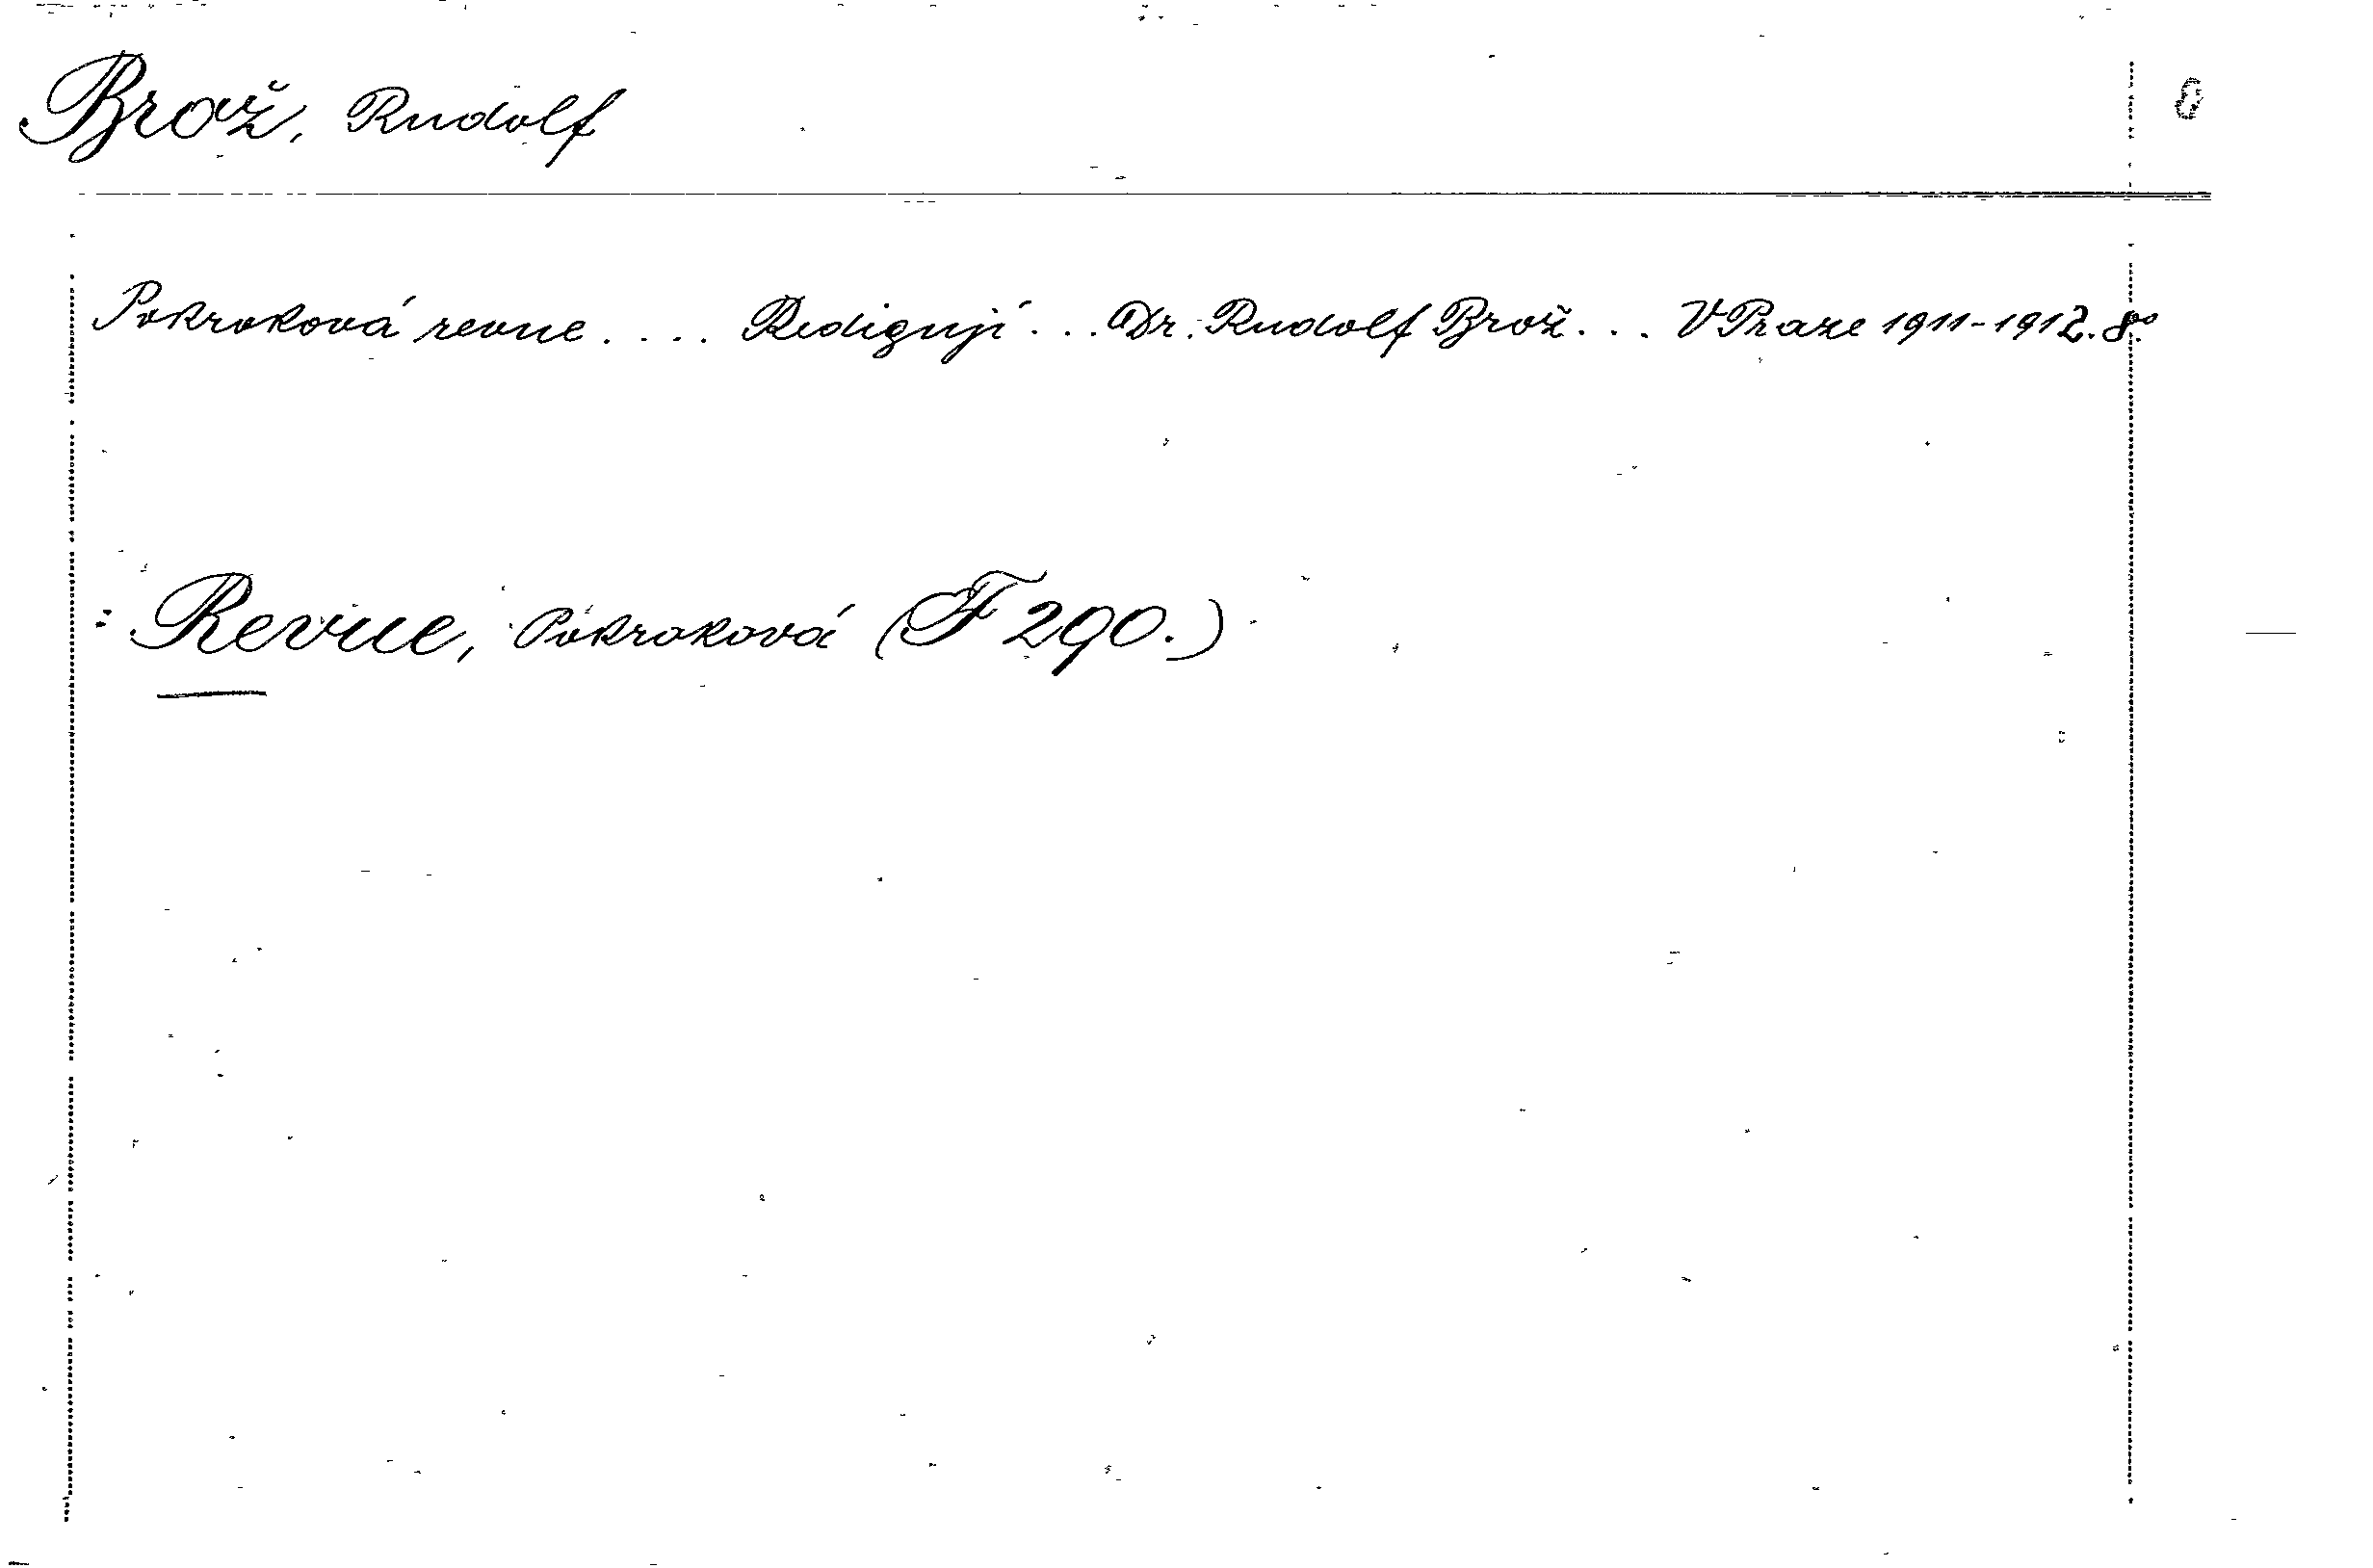 Brož, Rudolf
Pokroková revue.... Redigují... Dr. Rudolf Brož... V Praze 1911-1912. 8°.
: Revue, Pokroková (F 290.)